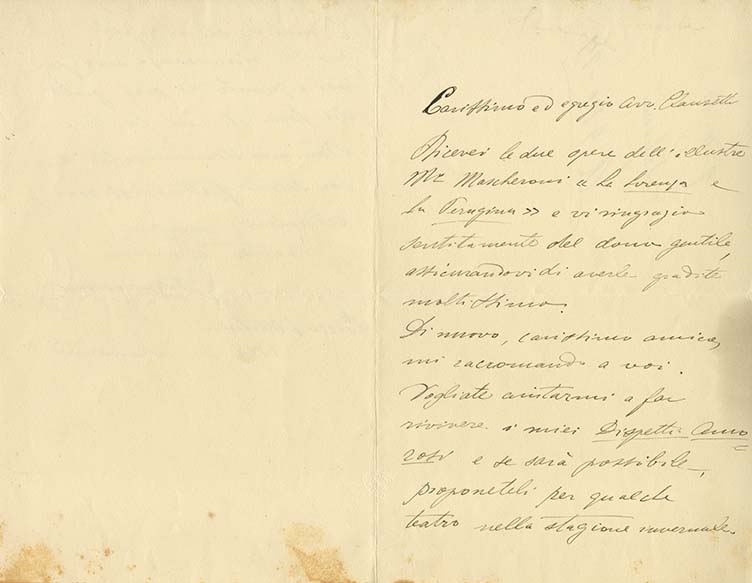 Carissimo ed egregio Avv. Clausetti
Ricevei le due opere dell'illustre
Mº Mascheroni « La Lorenza e
La Perugina » e vi ringrazio
sentitamente del dono gentile,
assicurandovi di averle gradite
moltissimo.
Di nuovo, carissimo amico,
mi raccomando a voi.
Vogliate aiutarmi a far
rivivere i miei Dispetti Amo=
rosi e se sarà possibile,
proponeteli per qualche
teatro nella stagione invernale.